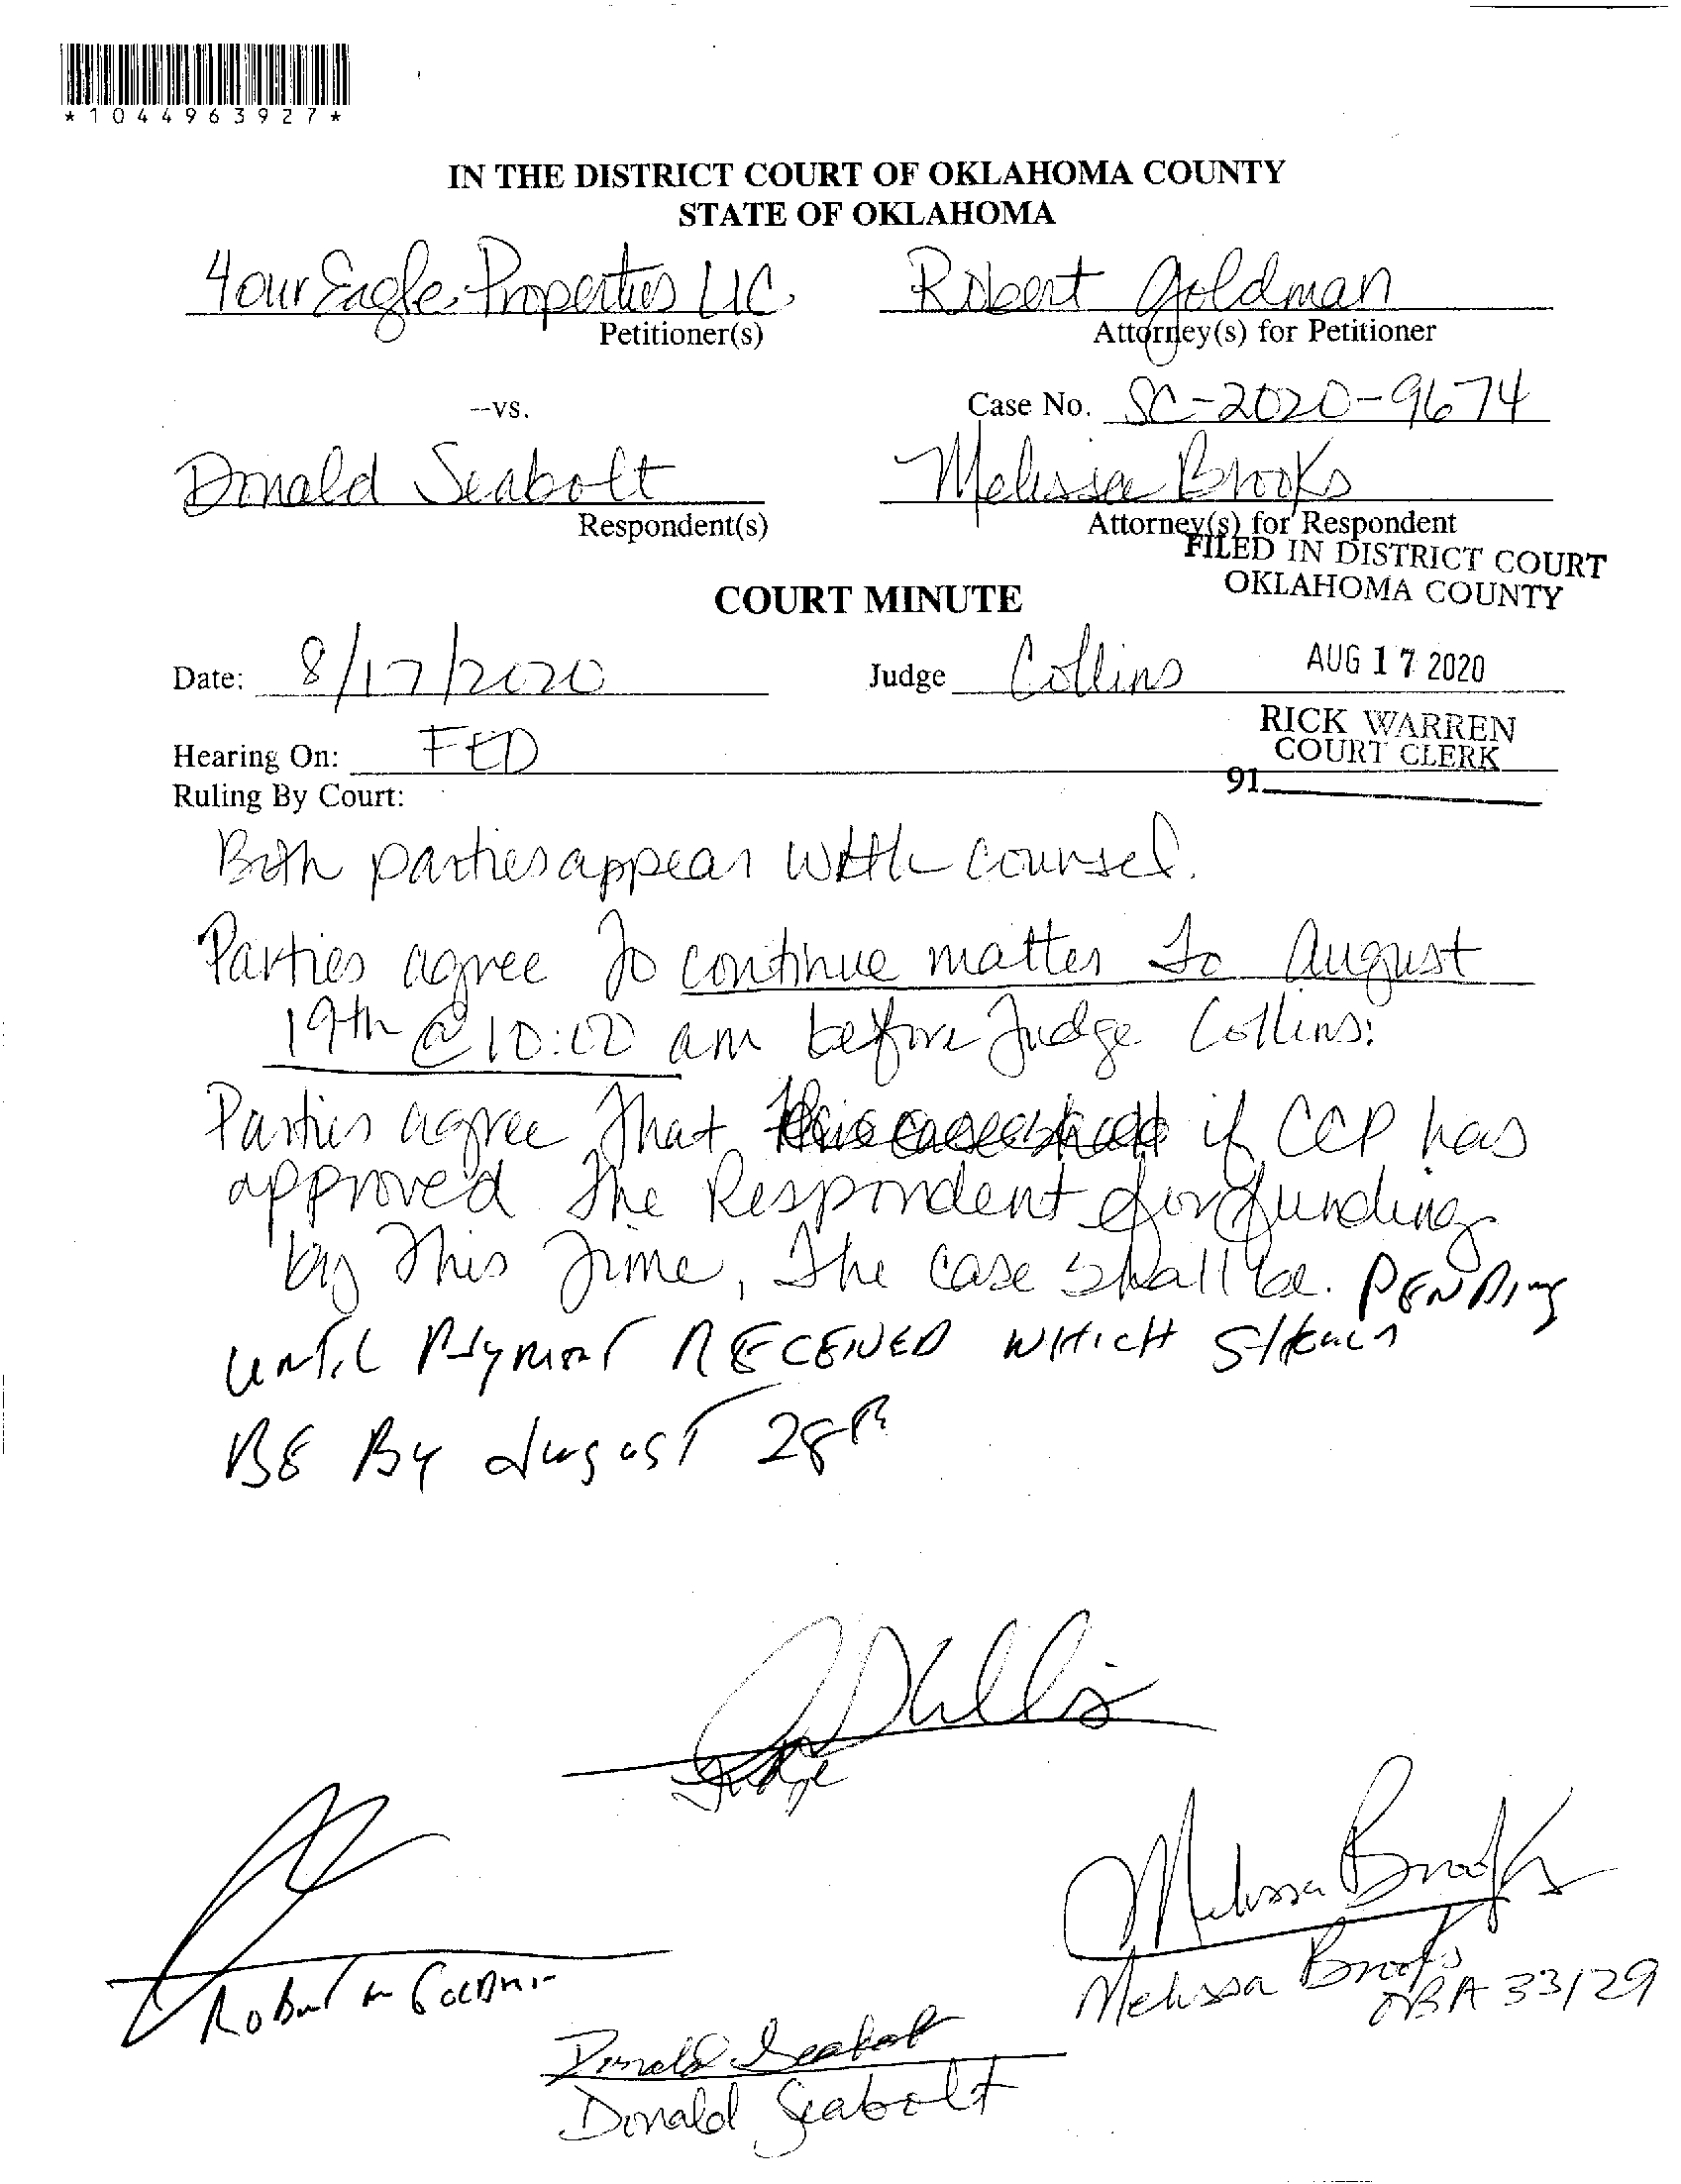 *1044963927*
IN THE DISTRICT COURT OF OKLAHOMA COUNTY
STATE OF OKLAHOMA
4our Eagle Properties LLC
Petitioner(s)
Robert Goldman
Attorney(s) for Petitioner
--vs.
Case No. SC-2020-9674
Donald Seabolt
Respondent(s)
Melissa Brooks
Attorney(s) for Respondent
FILED IN DISTRICT COURT
OKLAHOMA COUNTY
COURT MINUTE
Date: 8/17/2020
Judge Collins
AUG 17 2020
Hearing On: FED
RICK WARREN
COURT CLERK
91
Ruling By Court:
Both parties appear with counsel.
Parties agree to continue matter to August
19th @ 10:00 am before Judge Collins.
Parties agree that if CCP has
approved the Respondent for funding
by this time, the case shall be. PENDING
UNTIL PAYMENT RECEIVED WHICH SHALL
BE BY AUGUST 28th
Judge
Melissa Brooks
Robert M Goldman
Melissa Brooks
OBA 33129
Donald Seabolt
Donald Seabolt